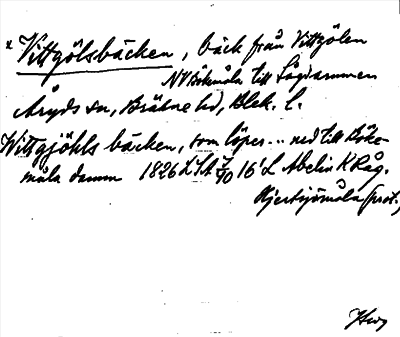 x Vittgölsbäcken, bäck från Vittgölen
NV Bökmåla till Sågdammen
Åryds sn, Bräkne hd, Blek. l.
Wittgjöhls bäcken, som löper... ned till Böke-
måla damm 1826 LSA 16 L Abelin K Råg.
Hjertsjömåla (prot.)